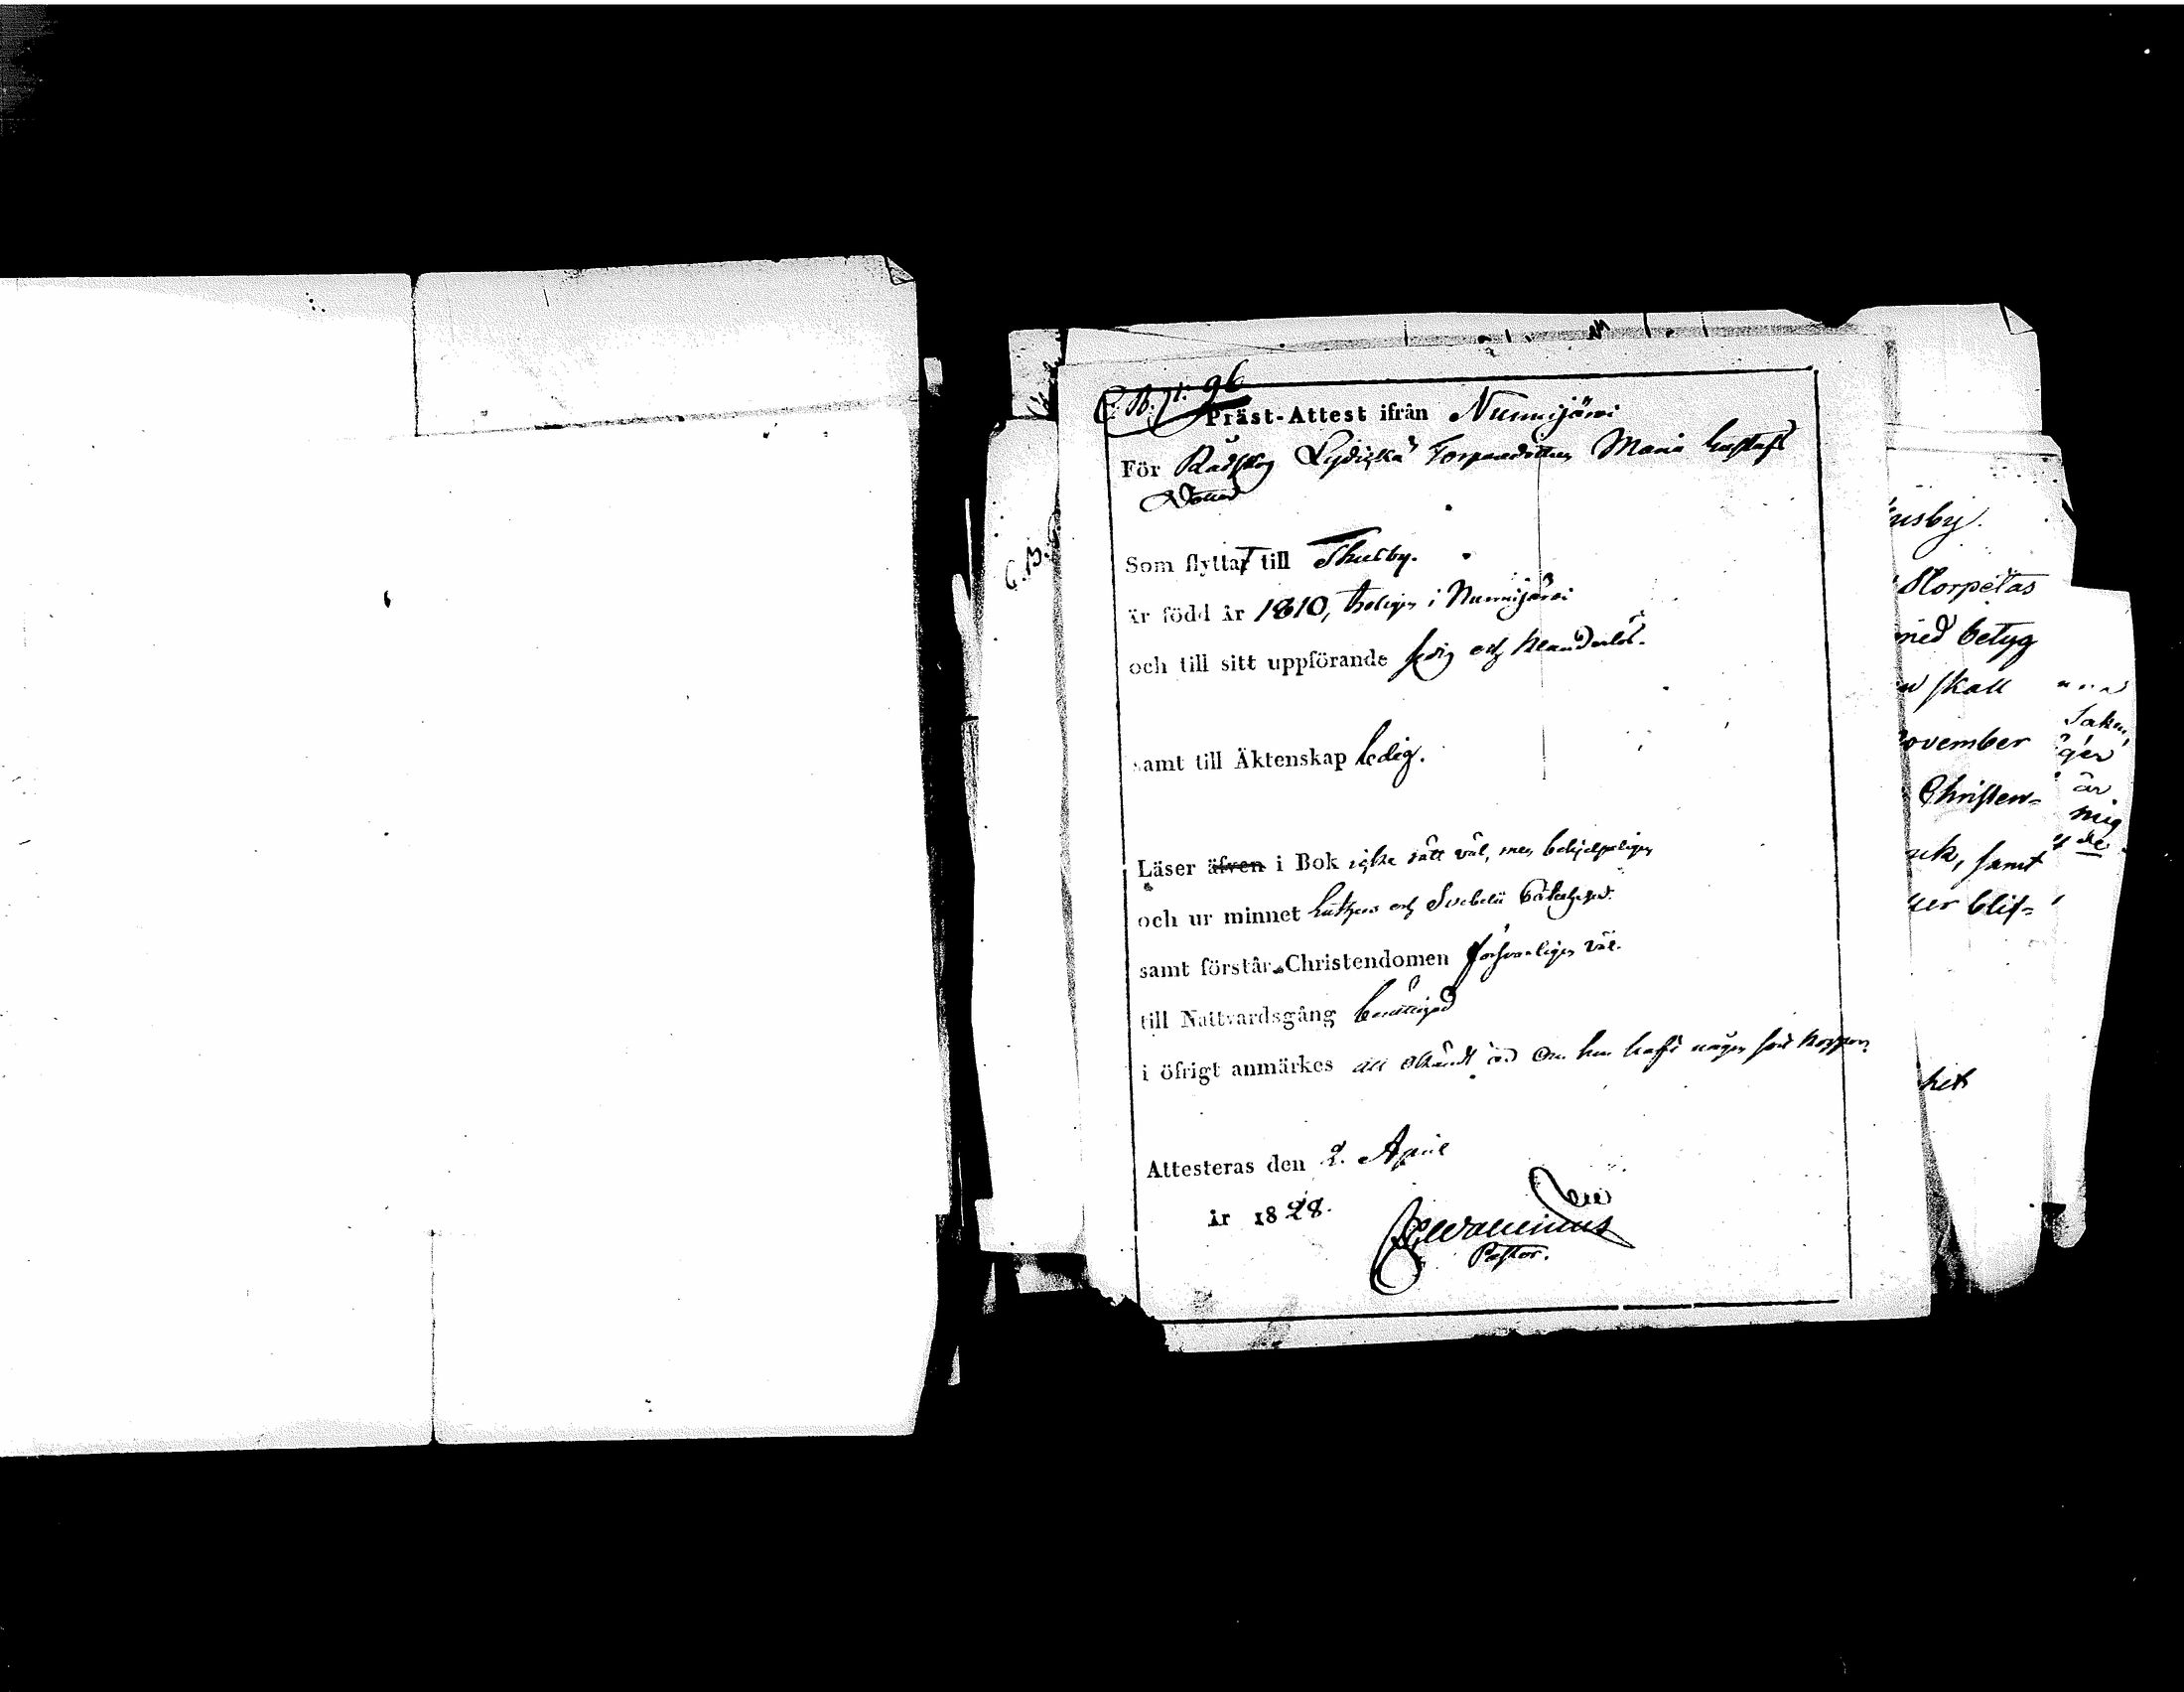 C. B. p. 96
Präst-Attest ifrån Nurmijärvi
För Rådskog Torparedottren Maria Gustafs
Dotter
Som flyttat till Thusby.
är född år 1810, troligen i Nurmijärvi
och till sitt uppförande frdig och klanderlös.
samt till Äktenskap ledig.
Läser äfven i Bok icke rätt väl, men behjelpeligen
och ur minnet Lutheri och Svebelii Catecheser.
samt förstår Christendomen försvarligen väl.
till Nattvardsgång berättigad
i öfrigt anmärkes att okändt är om hon haft någon sort koppor.
Attesteras den 2. April
år 1828.
Pastor.
C. B.
usby.
Korpelas
med betyg
skall
ovember
Christen-
samt
blif-
är
mig
de
het